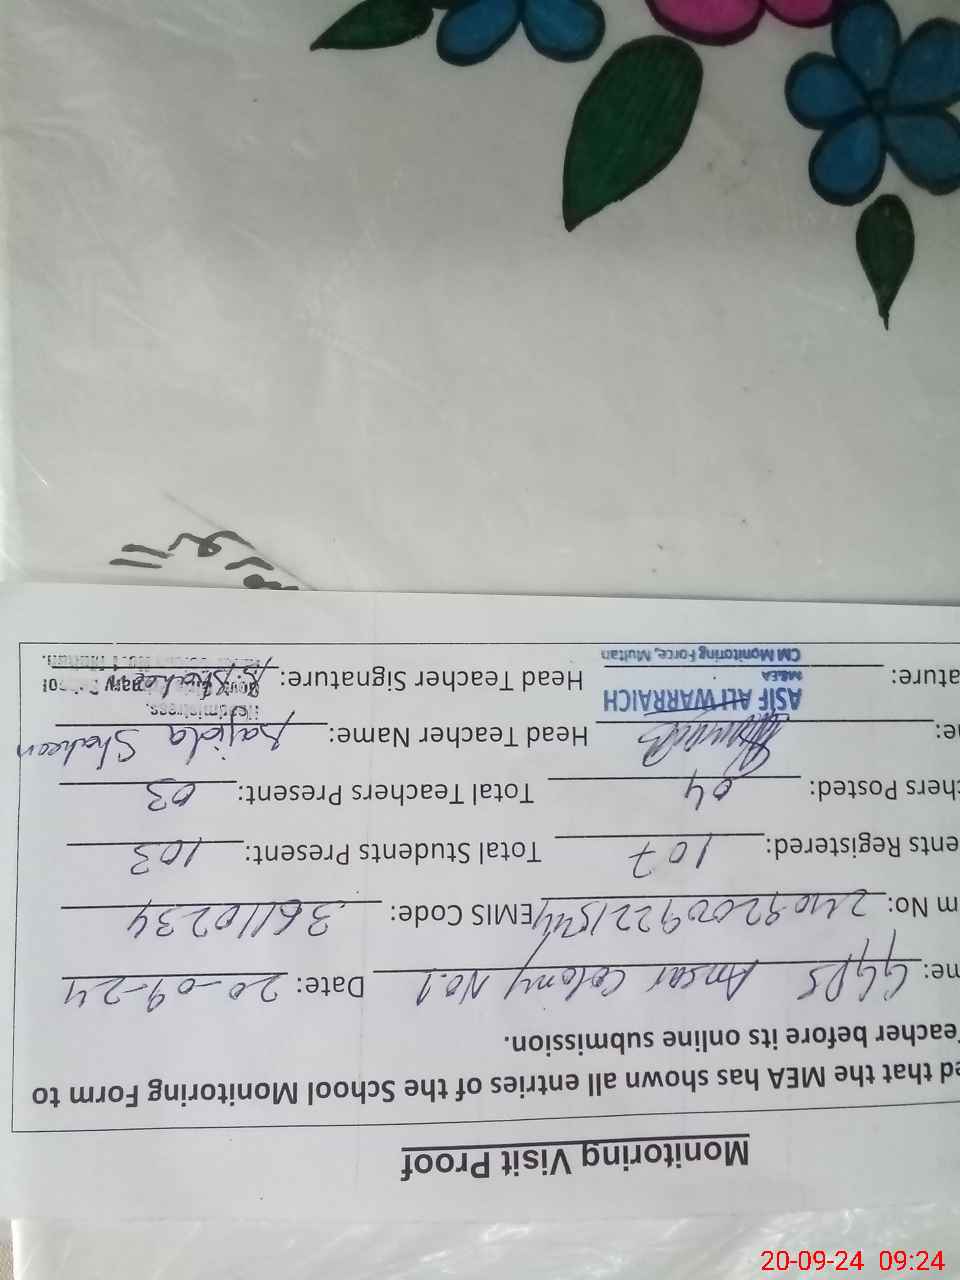 Monitoring Visit Proof
ed that the MEA has shown all entries of the School Monitoring Form to
Teacher before its online submission.
me: GGPS Ansar Colony No.1 Date: 20-09-24
m No: EMIS Code: 36110234
ents Registered: 107 Total Students Present: 103
chers Posted: 04 Total Teachers Present: 03
e: Head Teacher Name: Sajida Shaheen
ature: Head Teacher Signature:
ASIF ALI WARRAICH
MEA
CM Monitoring Force, Multan
20-09-24 09:24